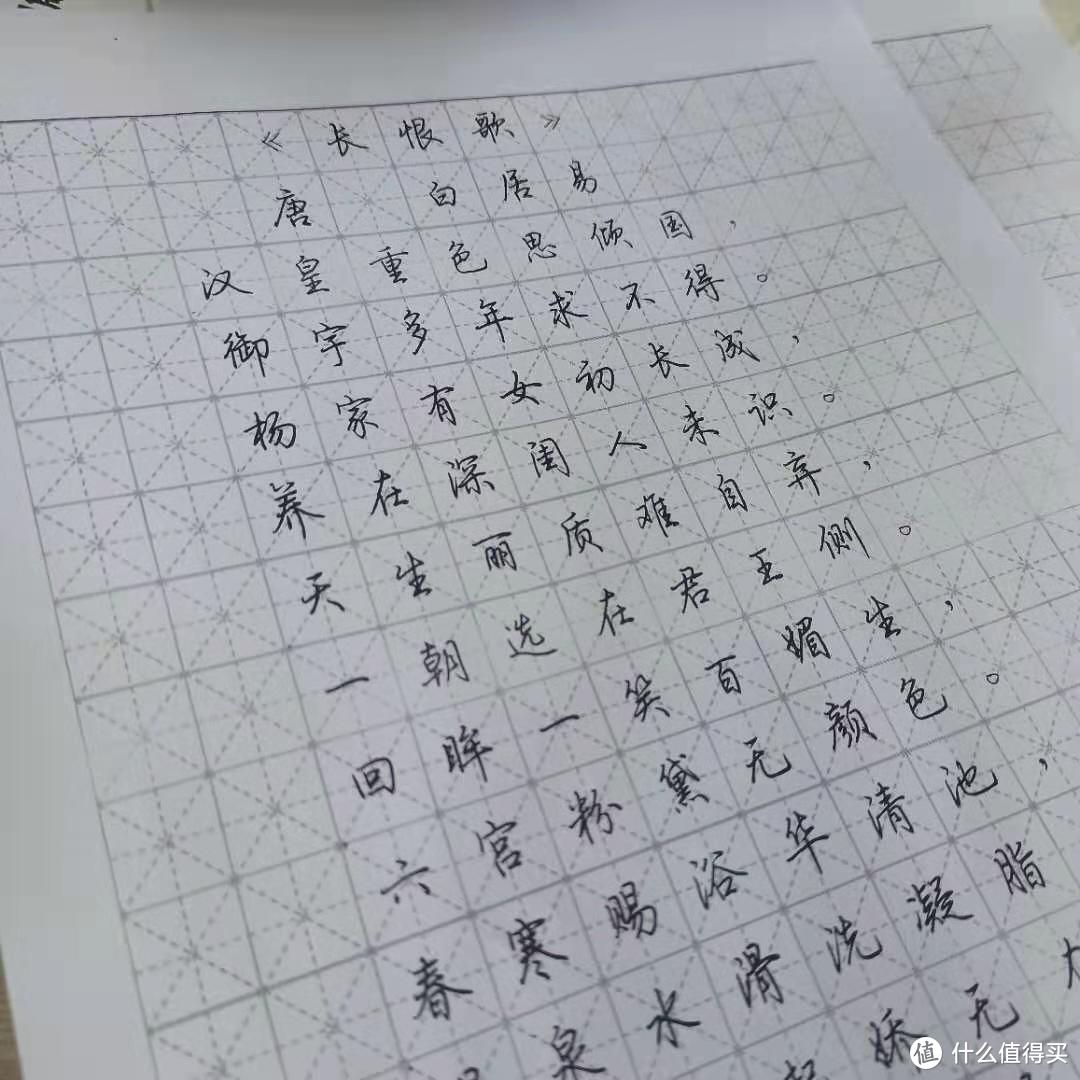 《长恨歌》
唐 白居易
汉皇重色思倾国，
御宇多年求不得。
杨家有女初长成，
养在深闺人未识。
天生丽质难自弃，
一朝选在君王侧。
回眸一笑百媚生，
六宫粉黛无颜色。
春寒赐浴华清池，
泉水滑洗凝脂
娇无
值 什么值得买